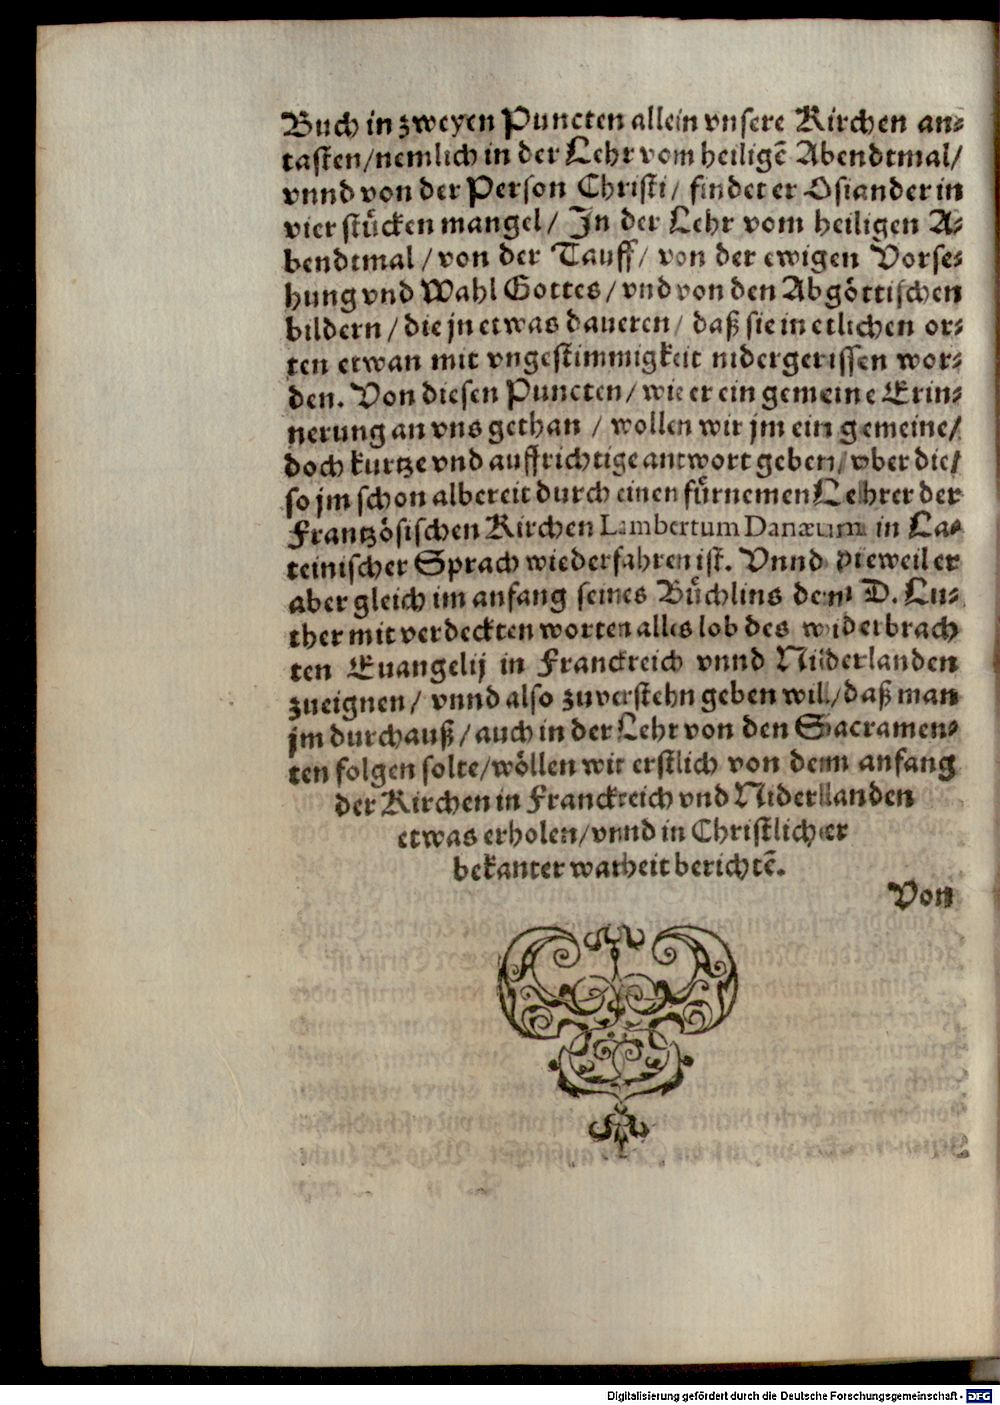 Buch in zweyen Puncten allein vnsere Kirchen an⸗
tasten/nemlich in der Lehr vom heiligẽ Abendtmal/
vnnd von der Person Christi/ findet er Osiander in
vier stuͤcken mangel/ In der Lehr vom heiligen A⸗
bendtmal/von der Tauff/ von der ewigen Vorse⸗
hung vnd Wahl Gottes/vnd von den Abgoͤttischen
bildern/die jn etwas dauren/ daß sie in etlichen or⸗
ten etwan mit vngestimmigkeit nidergerissen wor⸗
den. Von diesen Puncten/wie er ein gemeine Erin⸗
nerung an vns gethan/ wollen wir jm ein gemeine/
doch kurtze vnd auffrichtige antwort geben/vber die/
so jm schon albereit durch einen fuͤrnemen Lehrer der
Frantzoͤsischen Kirchen Lambertum Danæum in La⸗
teinischer Sprach wiederfahren ist. Vnnd dieweil er
aber gleich im anfang seines Buͤchlins dem D. Lu⸗
ther mit verdeckten worten alles lob des widerbrach
ten Euangelij in Franckreich vnnd Niderlanden
zueignen/ vnnd also zuverstehn geben will/daß man
jm durchauß/auch in der Lehr von den Sacramen⸗
ten folgen solte/woͤllen wir erstlich von dem anfang
der Kirchen in Franckreich vnd Niderlanden
etwas erholen/vnnd in Christlicher
bekanter warheit berichtẽ.
Von
Digitalisierung gefördert durch die Deutsche Forschungsgemeinschaft - DFG